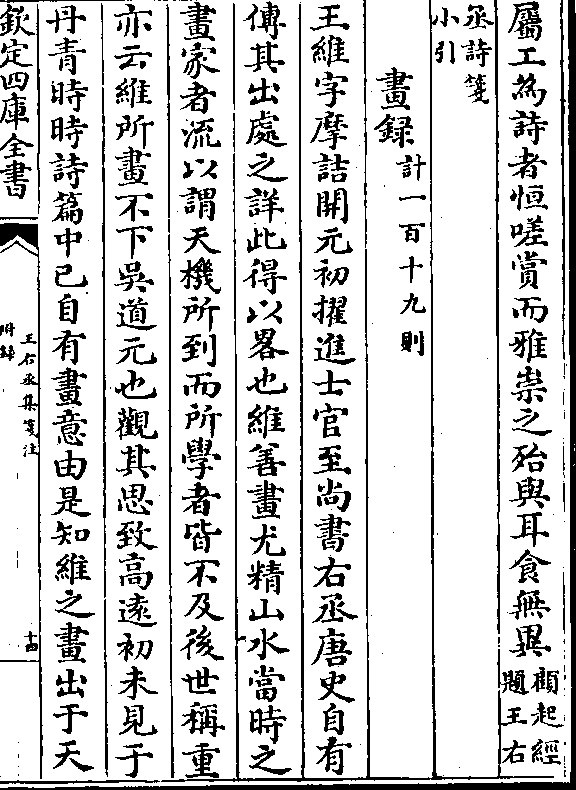 屬工為詩者恒嗟賞而雅崇之殆與耳食無異顧起經題王右
丞詩箋小引
畫録計一百十九則
王維字摩詰開元初擢進士官至尚書右丞唐史自有
傳其出處之詳此得以畧也維善畫尤精山水當時之
畫家者流以謂天機所到而所學者皆不及後世稱重
亦云維所畫不下吳道元也觀其思致高逺初未見于
丹青時時詩篇中已自有畫意由是知維之畫出于天
欽定四庫全書
王右丞集箋注
附録
十四